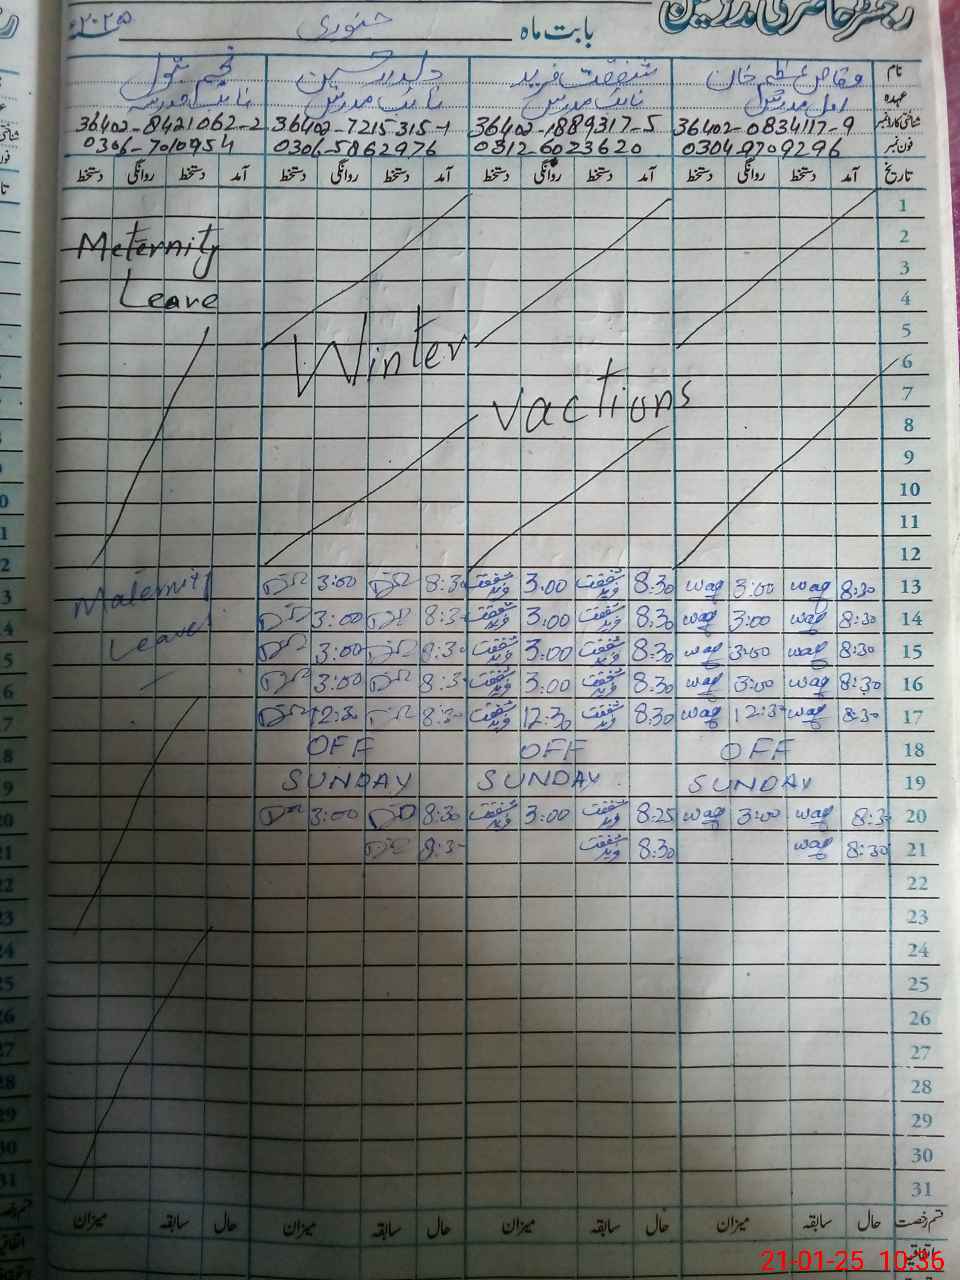 رجسٹر حاضری مدرسین
بابت ماہ جنوری ۲۰۲۵ء
نام وقاص عظیم خان شفقت فرید دلدار حسین نجم بتول
عہدہ اول مدرس نائب مدرس نائب مدرس نائب مدرسہ
شناختی کارڈ نمبر 36402-0834117-9 36402-1889317-5 36402-7215315-1 36402-8421062-2
فون نمبر 0304-9709296 0312-6023620 0306-5862976 0306-7010954
تاریخ آمد دستخط روانگی دستخط آمد دستخط روانگی دستخط آمد دستخط روانگی دستخط آمد دستخط روانگی دستخط
1
2 Meternity
3
4 Leave
5 Winter
6
7 vactions
8
9
10
11
12
13 8:30 waq 3:00 waq 8:30 شفقت فرید 3:00 شفقت فرید 8:30 3:00 Maternity
14 8:30 waq 3:00 waq 8:30 شفقت فرید 3:00 شفقت فرید 8:30 3:00 Leave
15 8:30 waq 3:00 waq 8:30 شفقت فرید 3:00 شفقت فرید 8:30 3:00
16 8:30 waq 3:00 waq 8:30 شفقت فرید 3:00 شفقت فرید 8:30 3:00
17 8:30 waq 12:30 waq 8:30 شفقت فرید 12:30 شفقت فرید 8:30 12:30
18 OFF OFF OFF
19 SUNDAY SUNDAY SUNDAY
20 8:30 waq 3:00 waq 8:25 شفقت فرید 3:00 شفقت فرید 8:30 3:00
21 8:30 waq 8:30 شفقت فرید 8:30
22
23
24
25
26
27
28
29
30
31
قسم رخصت حال سابقہ میزان حال سابقہ میزان حال سابقہ میزان حال سابقہ میزان
اتفاقیہ
21-01-25 10:36